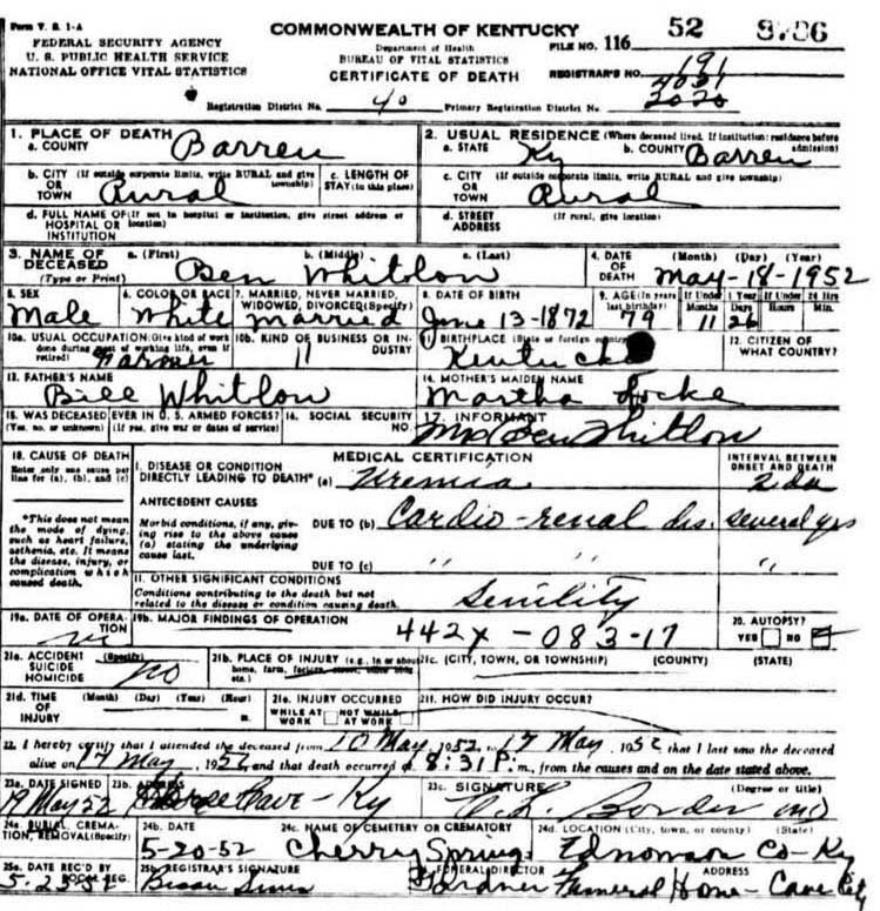 Form V. S. 1-A
FEDERAL SECURITY AGENCY
U. S. PUBLIC HEALTH SERVICE
NATIONAL OFFICE VITAL STATISTICS
COMMONWEALTH OF KENTUCKY
Department of Health
BUREAU OF VITAL STATISTICS
CERTIFICATE OF DEATH
FILE NO. 116 52
REGISTRAR'S NO. 191
Registration District No. 40 Primary Registration District No.
1. PLACE OF DEATH
a. COUNTY Barren
2. USUAL RESIDENCE (Where deceased lived. If institution: residence before admission)
a. STATE Ky b. COUNTY Barren
b. CITY (If outside corporate limits, write RURAL and give township)
OR TOWN Rural
c. LENGTH OF STAY (in this place)
c. CITY (If outside corporate limits, write RURAL and give township)
OR TOWN Rural
d. FULL NAME OF (If not in hospital or institution, give street address or location)
HOSPITAL OR INSTITUTION
d. STREET ADDRESS (If rural, give location)
3. NAME OF DECEASED (Type or Print)
a. (First) b. (Middle) c. (Last)
Ben Whitlow
4. DATE OF DEATH (Month) (Day) (Year)
May-18-1952
5. SEX
Male
6. COLOR OR RACE
White
7. MARRIED, NEVER MARRIED, WIDOWED, DIVORCED (Specify)
Married
8. DATE OF BIRTH
June 13-1872
9. AGE (In years last birthday)
79
If Under 1 Year Months Days
11 26
If Under 24 Hrs Hours Min.
10a. USUAL OCCUPATION (Give kind of work done during most of working life, even if retired)
Farmer
10b. KIND OF BUSINESS OR INDUSTRY
11
11. BIRTHPLACE (State or foreign country)
12. CITIZEN OF WHAT COUNTRY?
13. FATHER'S NAME
Bill Whitlow
14. MOTHER'S MAIDEN NAME
Martha Locke
15. WAS DECEASED EVER IN U. S. ARMED FORCES?
(Yes, no, or unknown) (If yes, give war or dates of service)
16. SOCIAL SECURITY NO.
17. INFORMANT
Mrs Ben Whitlow
18. CAUSE OF DEATH
Enter only one cause per line for (a), (b), and (c)
MEDICAL CERTIFICATION
INTERVAL BETWEEN ONSET AND DEATH
I. DISEASE OR CONDITION DIRECTLY LEADING TO DEATH* (a) Uremia 2 da
ANTECEDENT CAUSES
*This does not mean the mode of dying, such as heart failure, asthenia, etc. It means the disease, injury, or complication which caused death.
Morbid conditions, if any, giving rise to the above cause (a) stating the underlying cause last.
DUE TO (b) Cardio-renal dis. several yrs
DUE TO (c) " " "
II. OTHER SIGNIFICANT CONDITIONS
Conditions contributing to the death but not related to the disease or condition causing death.
Senility
19a. DATE OF OPERATION
19b. MAJOR FINDINGS OF OPERATION
442X-083-17
20. AUTOPSY?
YES NO
21a. ACCIDENT SUICIDE HOMICIDE (Specify)
no
21b. PLACE OF INJURY (e.g., in or about home, farm, factory, street, office bldg. etc.)
21c. (CITY, TOWN, OR TOWNSHIP) (COUNTY) (STATE)
21d. TIME OF INJURY (Month) (Day) (Year) (Hour) m.
21e. INJURY OCCURRED
WHILE AT WORK NOT WHILE AT WORK
21f. HOW DID INJURY OCCUR?
22. I hereby certify that I attended the deceased from 10 May, 1952, to 17 May, 1952 that I last saw the deceased
alive on 17 May, 1952, and that death occurred at 8:31 P. m., from the causes and on the date stated above.
23a. DATE SIGNED
19 May 52
23b. ADDRESS
Horse Cave-Ky
23c. SIGNATURE (Degree or title)
MD
24a. BURIAL, CREMATION, REMOVAL (Specify)
24b. DATE
5-20-52
24c. NAME OF CEMETERY OR CREMATORY
Cherry Spring
24d. LOCATION (City, town, or county) (State)
Edmonson Co-Ky
25a. DATE REC'D BY LOCAL REG.
25b. REGISTRAR'S SIGNATURE
FUNERAL DIRECTOR ADDRESS
Funeral Home-Cave City